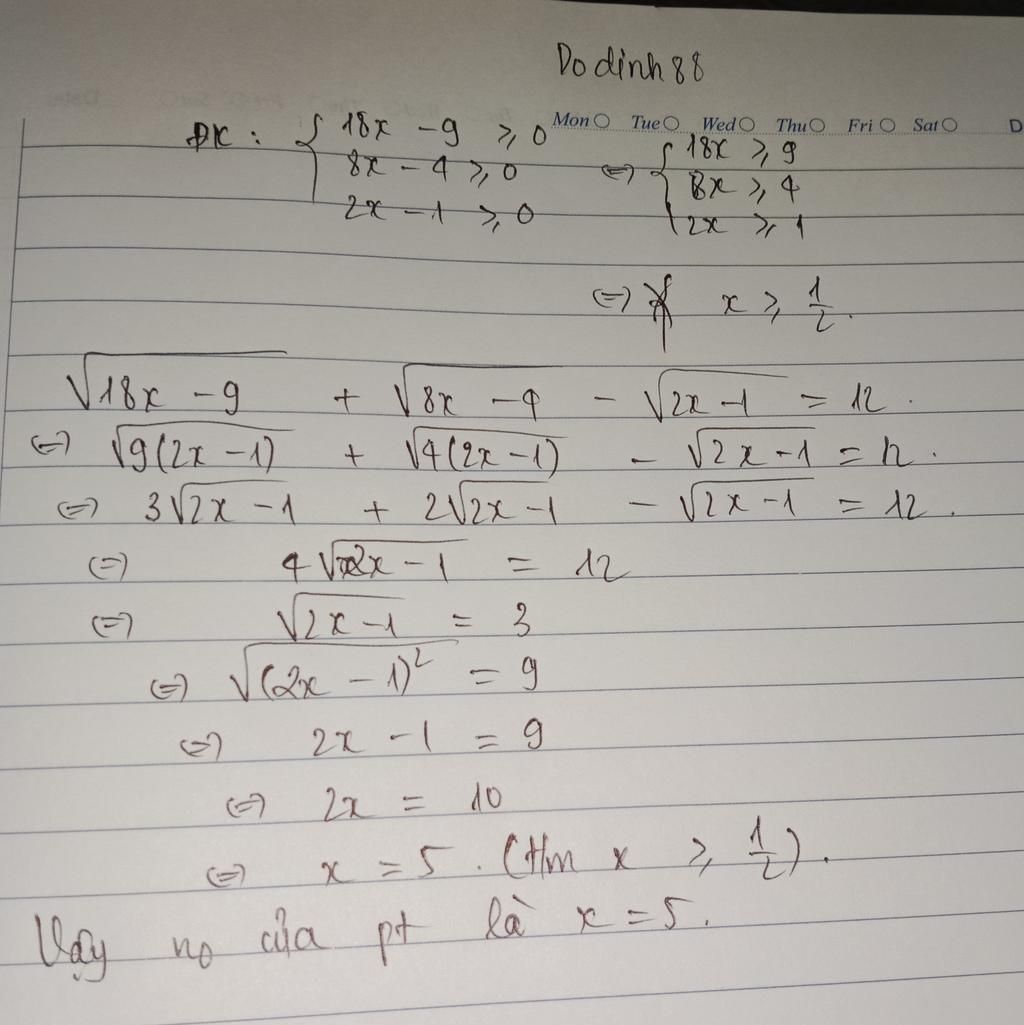 Do dinh 88
Mon Tue Wed Thu Fri Sat D
ĐK: { 18x - 9 ≥ 0 <=> { 18x ≥ 9
8x - 4 ≥ 0 8x ≥ 4
2x - 1 ≥ 0 2x ≥ 1
<=> x ≥ 1/2.
√(18x - 9) + √(8x - 4) - √(2x - 1) = 12.
<=> √(9(2x - 1)) + √(4(2x - 1)) - √(2x - 1) = 12.
<=> 3√(2x - 1) + 2√(2x - 1) - √(2x - 1) = 12.
<=> 4√(2x - 1) = 12
<=> √(2x - 1) = 3
<=> √((2x - 1)²) = 9
<=> 2x - 1 = 9
<=> 2x = 10
<=> x = 5. (t/m x ≥ 1/2).
Vậy no của pt là x = 5.